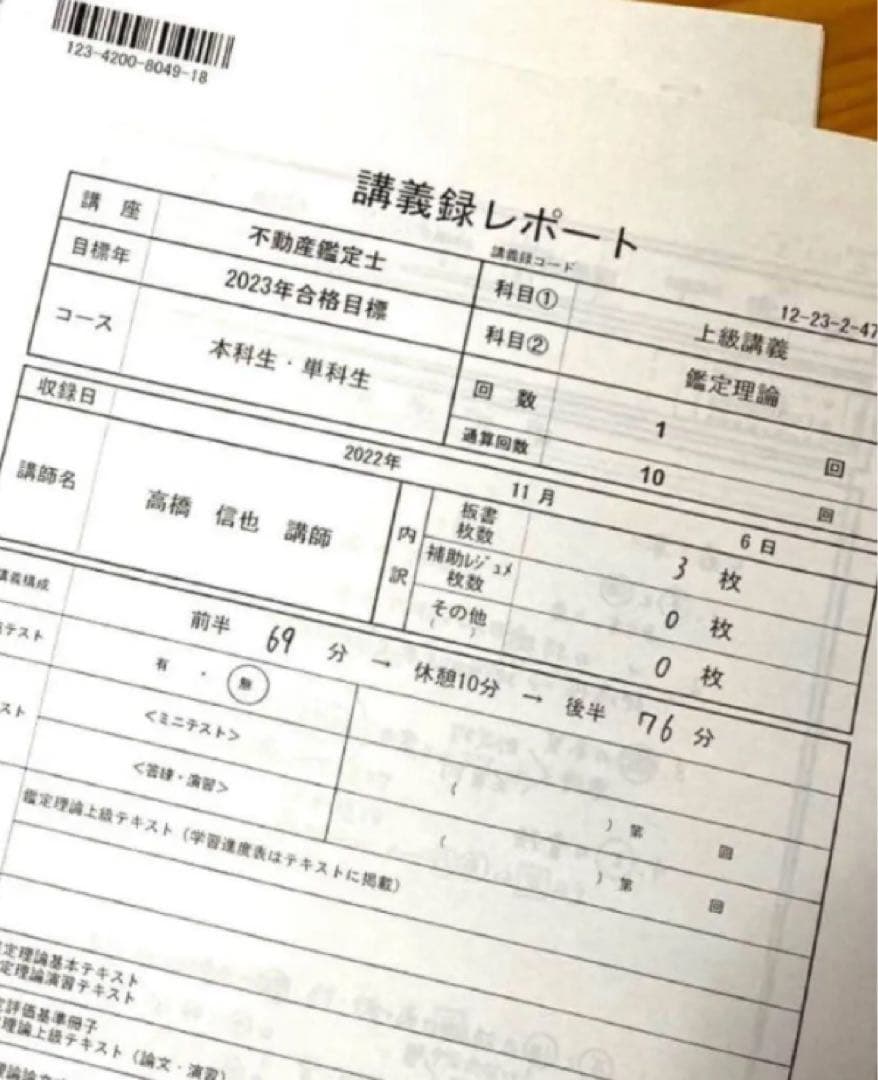 123-4200-8049-18
講義録レポート
講義録コード
12-23-2-47
講 座 不動産鑑定士 科目① 上級講義
目標年 2023年合格目標 科目② 鑑定理論
コース 本科生・単科生 回 数 1 回
通算回数 10 回
収録日 2022年 11月 6日
講師名 高橋 信也 講師 内訳 板書枚数 3 枚
補助レジュメ枚数 0 枚
その他 ( ) 0 枚
講義構成 前半 69 分 → 休憩10分 → 後半 76 分
テスト 有 ・ 無
スト <ミニテスト> ( ) 第 回
<答練・演習> ( ) 第 回
鑑定理論上級テキスト(学習進度表はテキストに掲載)
定理論基本テキスト
定理論演習テキスト
評価基準冊子
理論上級テキスト(論文・演習)